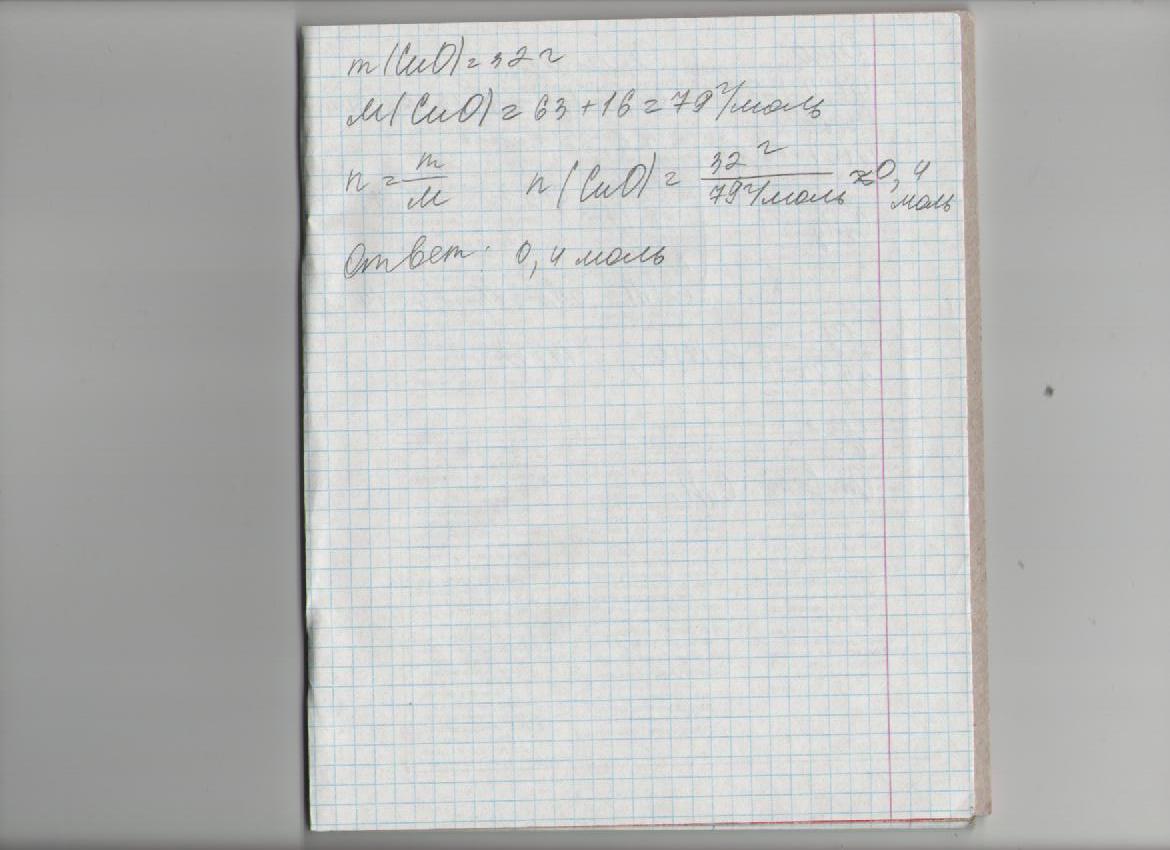 m(CuO) = 32 г
M(CuO) = 63 + 16 = 79 г/моль
n = m/M n(CuO) = 32 г / 79 г/моль ≈ 0,4 моль
Ответ: 0,4 моль